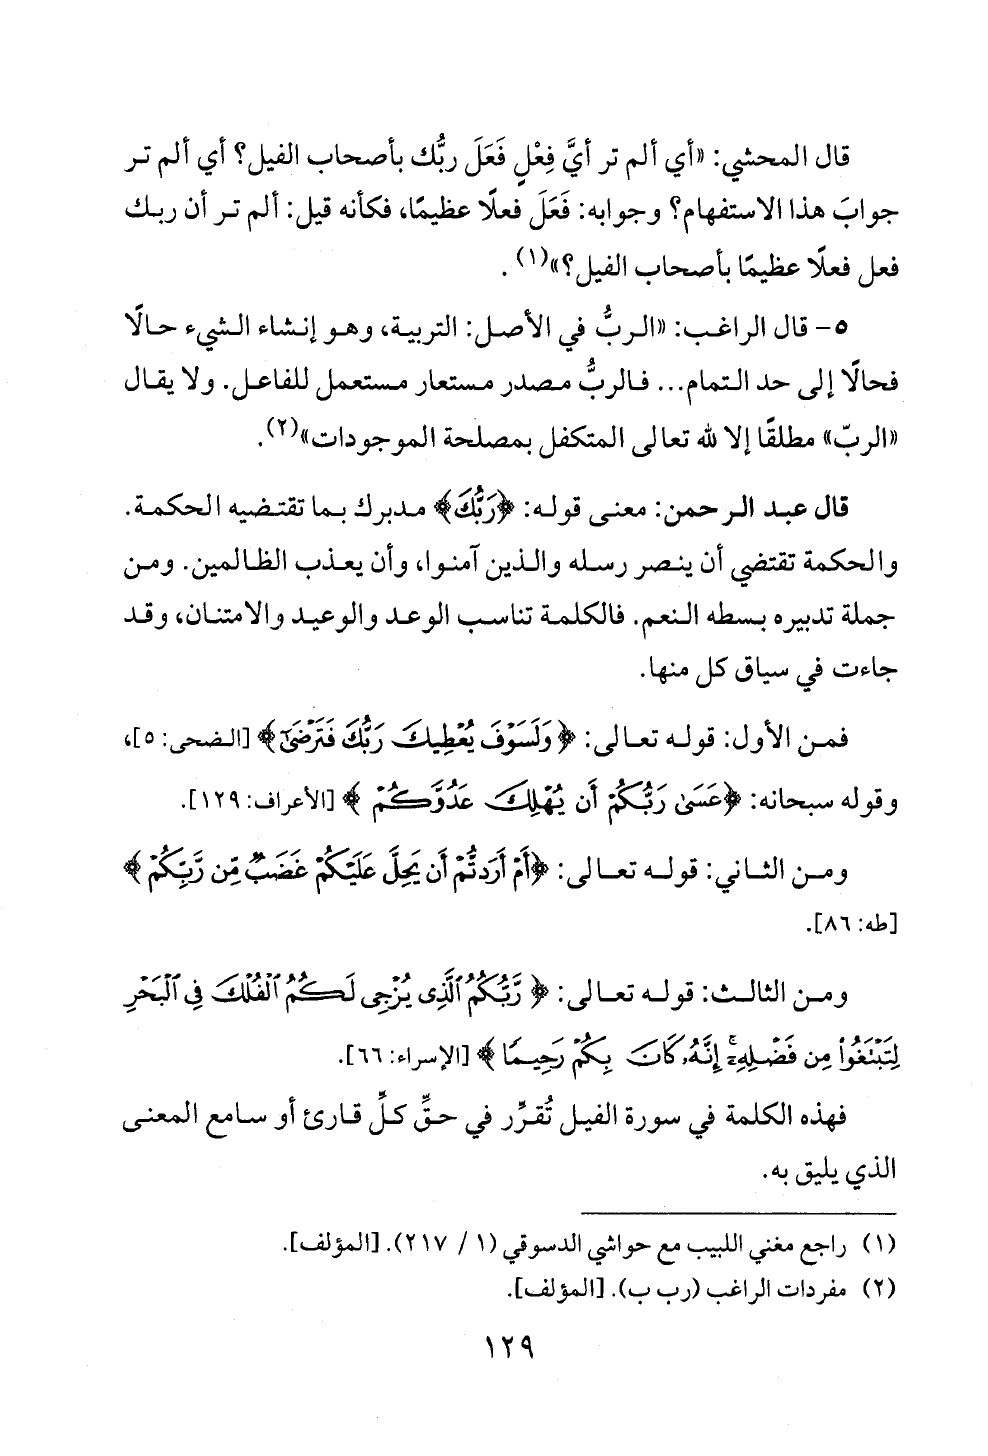 قال المحشي: «أي ألم تر أيَّ فِعْلٍ فَعَلَ ربُّك بأصحاب الفيل؟ أي ألم تر
جوابَ هذا الاستفهام؟ وجوابه: فَعَلَ فعلًا عظيمًا، فكأنه قيل: ألم تر أن ربك
فعل فعلًا عظيمًا بأصحاب الفيل؟»(١) .
٥- قال الراغب: «الربُّ في الأصل: التربية، وهو إنشاء الشيء حالًا
فحالًا إلى حد التمام... فالربُّ مصدر مستعار مستعمل للفاعل. ولا يقال
«الربّ» مطلقًا إلا لله تعالى المتكفل بمصلحة الموجودات»(٢).
قال عبد الرحمن: معنى قوله: ﴿رَبُّكَ﴾ مدبرك بما تقتضيه الحكمة.
والحكمة تقتضي أن ينصر رسله والذين آمنوا، وأن يعذب الظالمين. ومن
جملة تدبيره بسطه النعم. فالكلمة تناسب الوعد والوعيد والامتنان، وقد
جاءت في سياق كل منها.
فمن الأول: قوله تعالى: ﴿وَلَسَوْفَ يُعْطِيكَ رَبُّكَ فَتَرْضَىٰٓ﴾ [الضحى: ٥]،
وقوله سبحانه: ﴿عَسَىٰ رَبُّكُمْ أَن يُهْلِكَ عَدُوَّكُمْ ﴾ [الأعراف: ١٢٩].
ومن الثاني: قوله تعالى: ﴿أَمْ أَرَدتُّمْ أَن يَحِلَّ عَلَيْكُمْ غَضَبٌ مِّن رَّبِّكُمْ ﴾
[طه: ٨٦].
ومن الثالث: قوله تعالى: ﴿ رَّبُّكُمُ ٱلَّذِى يُزْجِى لَكُمُ ٱلْفُلْكَ فِى ٱلْبَحْرِ
لِتَبْتَغُوا۟ مِن فَضْلِهِۦٓ إِنَّهُۥ كَانَ بِكُمْ رَحِيمًا ﴾ [الإسراء: ٦٦].
فهذه الكلمة في سورة الفيل تُقرَّر في حقِّ كلِّ قارئ أو سامع المعنى
الذي يليق به.
(١) راجع مغني اللبيب مع حواشي الدسوقي (١ / ٢١٧). [المؤلف].
(٢) مفردات الراغب (رب ب). [المؤلف].
١٢٩